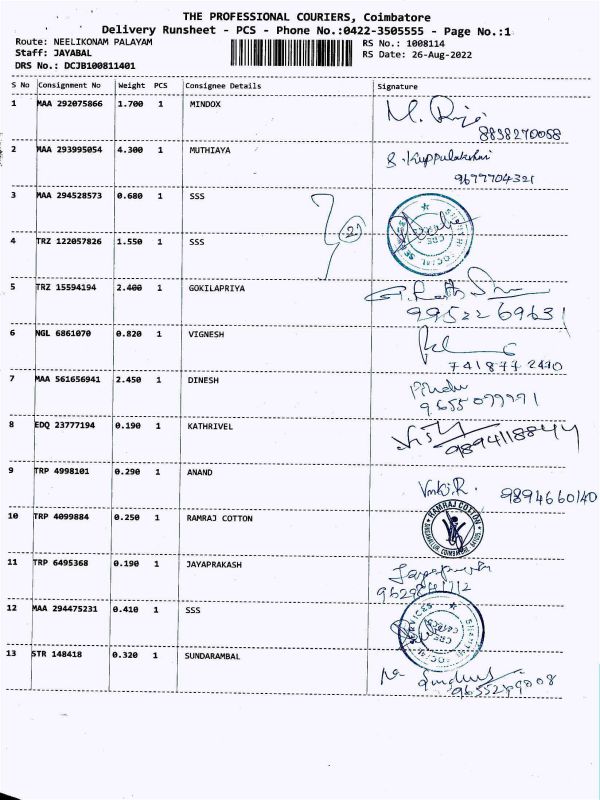 THE PROFESSIONAL COURIERS, Coimbatore
Delivery Runsheet - PCS - Phone No.:0422-3505555 - Page No.:1
Route: NEELIKONAM PALAYAM
RS No.: 1008114
Staff: JAYABAL
RS Date: 26-Aug-2022
DRS No.: DCJB100811401
S No Consignment No Weight PCS Consignee Details Signature
1 MAA 292075866 1.700 1 MINDOX
8838270058
2 MAA 293995054 4.300 1 MUTHIAYA
9677704321
3 MAA 294528573 0.680 1 SSS
2
4 TRZ 122057826 1.550 1 SSS
5 TRZ 15594194 2.400 1 GOKILAPRIYA
9952269631
6 NGL 6861070 0.820 1 VIGNESH
7 MAA 561656941 2.450 1 DINESH
8 EDQ 23777194 0.190 1 KATHRIVEL
9894118844
9 TRP 4998101 0.290 1 ANAND
9894660140
10 TRP 4099884 0.250 1 RAMRAJ COTTON
RAMRAJ COTTON
11 TRP 6495368 0.190 1 JAYAPRAKASH
12 MAA 294475231 0.410 1 SSS
13 STR 148418 0.320 1 SUNDARAMBAL